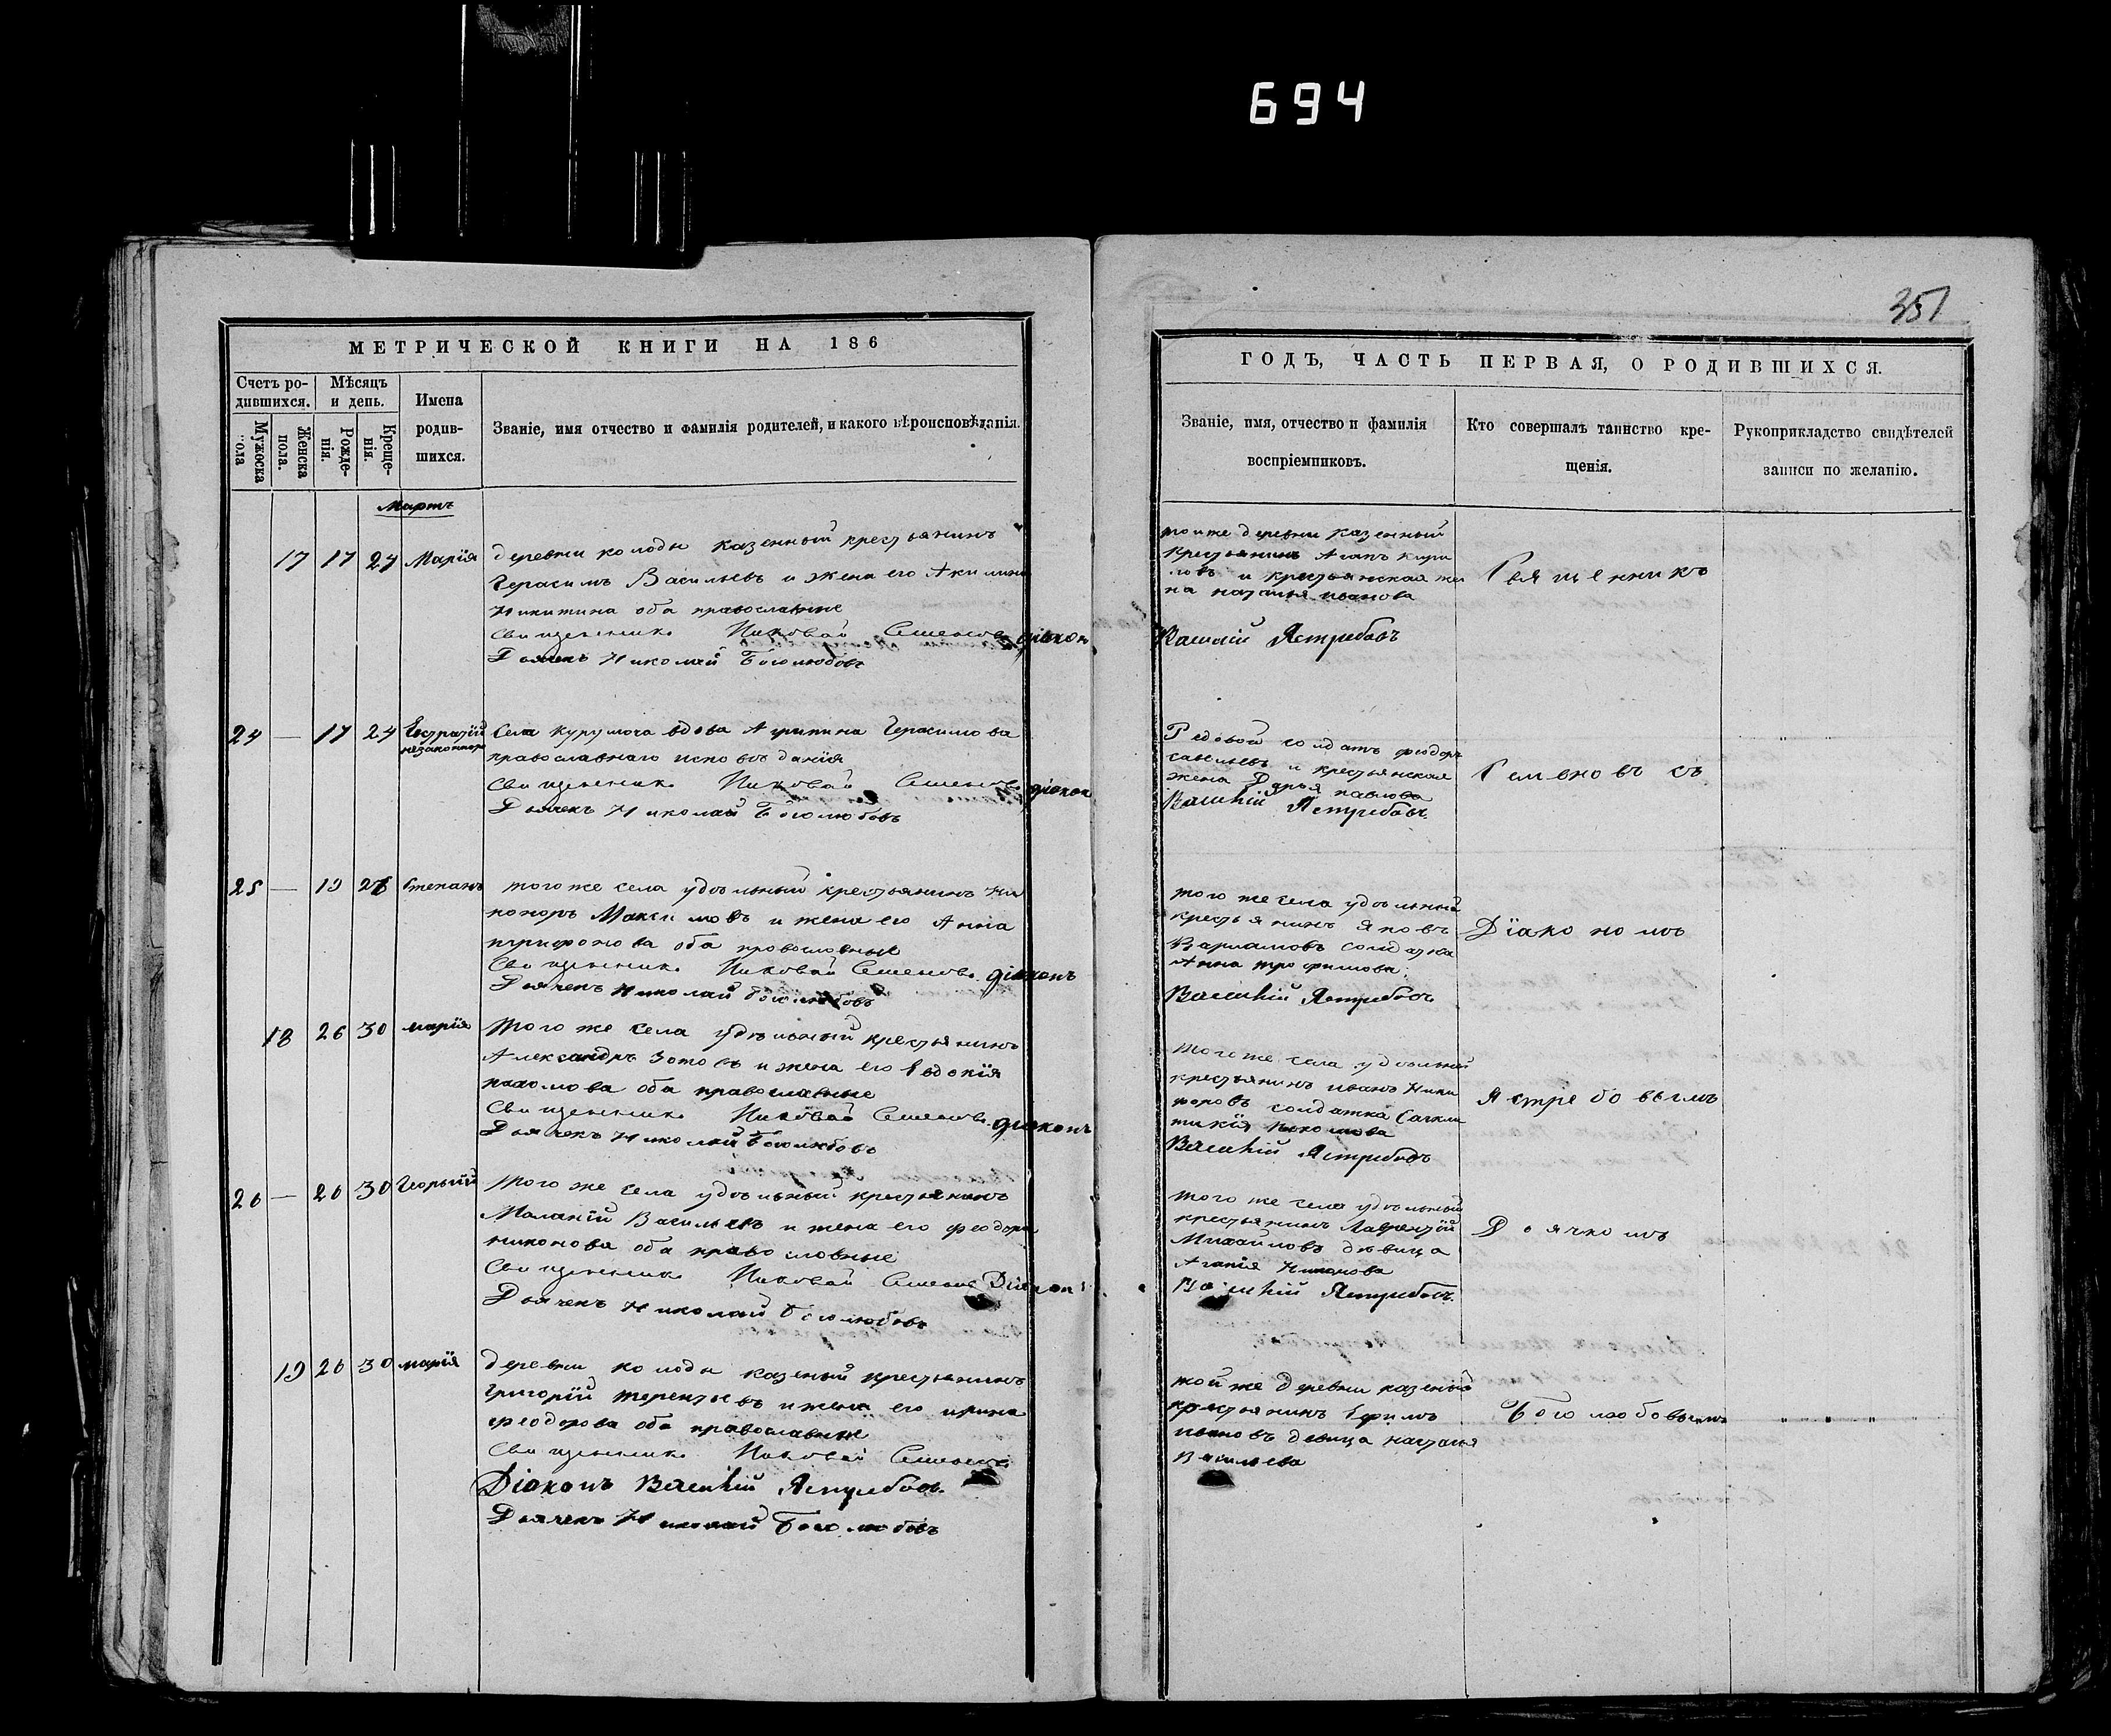 694
351
МЕТРИЧЕСКОЙ КНИГИ НА 186
Счетъ ро-
дившихся.
Мѣсяцъ
и день.
Имена
родив-
шихся.
Званіе, имя отчество и фамилія родителей, и какого вѣроисповѣданія.
Мужеска
пола
Женска
пола.
Рожде-
нія.
Креще-
нія.
Мартъ
17 17 24 Марія деревни колоды казенный крестьянинъ
Герасимъ Васильевъ и жена его Акилина
Никитина оба православные
Священникъ Семеновъ діакон
Дьячекъ Николай Боголюбовъ
24 — 17 24 Села курумоча вдова Агрипина Герасимова
православнаго исповѣданія
Священникъ Семеновъ діакон
Дьячекъ Николай Боголюбовъ
25 — 19 Степанъ того же села удѣльный крестьянинъ Ни
каноръ Максимовъ и жена его Анна
трифонова оба православные
Священникъ Семеновъ діаконъ
Дьячекъ Николай Боголюбовъ
18 26 30 марія того же села удѣльный крестьянинъ
Александръ Зотовъ и жена его Евдокія
пахомова оба православные
Священникъ Семеновъ діаконъ
Дьячекъ Николай Боголюбовъ
26 — 26 30 Георгій того же села удѣльный крестьянинъ
Маланій Васильевъ и жена его феодора
никонова оба православные
Священникъ Семеновъ Діакон
Дьячекъ Николай Боголюбовъ
19 26 30 марія деревни колоды казеный крестьянинъ
григорій терентьевъ и жена его ирина
феодорова оба православные
Священникъ Семеновъ
Діаконъ Василій Ястребовъ
Дьячекъ Николай Боголюбовъ
ГОДЪ, ЧАСТЬ ПЕРВАЯ, О РОДИВШИХСЯ.
Званіе, имя, отчество и фамилія
воспріемниковъ.
Кто совершалъ таинство кре-
щенія.
Рукоприкладство свидѣтелей
записи по желанію.
тойже деревни казенный
крестьянинъ Агапъ кири
ловъ и крестьянская же Священникъ
на наталья иванова
Василій Ястребовъ
Рядовой солдатъ феодоръ
савельевъ и крестьянская Семеновъ съ
жена Дарья павлова
Василій Ястребовъ
того же села удѣльный
крестьянинъ Яковъ Діакономъ
Варламовъ солдатка
Анна трофимова
Василій Ястребовъ
того же села удѣльный
крестьянинъ иванъ Ники
форовъ солдатка Ястребовымъ
Василій Ястребовъ
того же села удѣльный
крестьянинъ Лаврентій Дьячкомъ
Михайловъ дѣвица
Агапія Никонова
Василій Ястребовъ
той же деревни казеный
крестьянинъ Ефимъ Боголюбовымъ
ивановъ девица наталья
Васильева